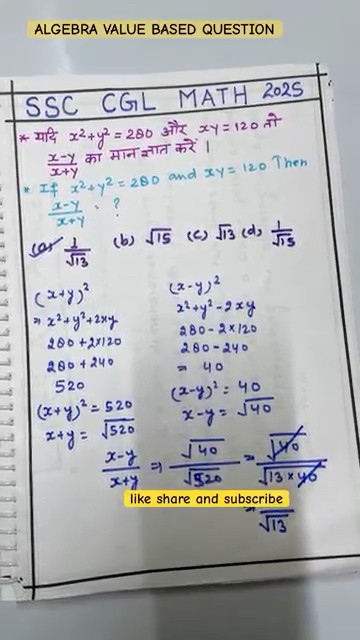 ALGEBRA VALUE BASED QUESTION
SSC CGL MATH 2025
* यदि x²+y² = 280 और xy = 120 तो
x-y/x+y का मान ज्ञात करें ।
* If x²+y² = 280 and xy = 120 Then
x-y/x+y = ?
(a) 1/√13 (b) √15 (c) √13 (d) 1/√15
(x+y)²
= x²+y²+2xy
280 + 2×120
280 + 240
520
(x+y)² = 520
x+y = √520
(x-y)²
x²+y²-2xy
280 - 2×120
280 - 240
= 40
(x-y)² = 40
x-y = √40
x-y/x+y ⇒ √40/√520 = √40/√13×40
like share and subscribe
= 1/√13